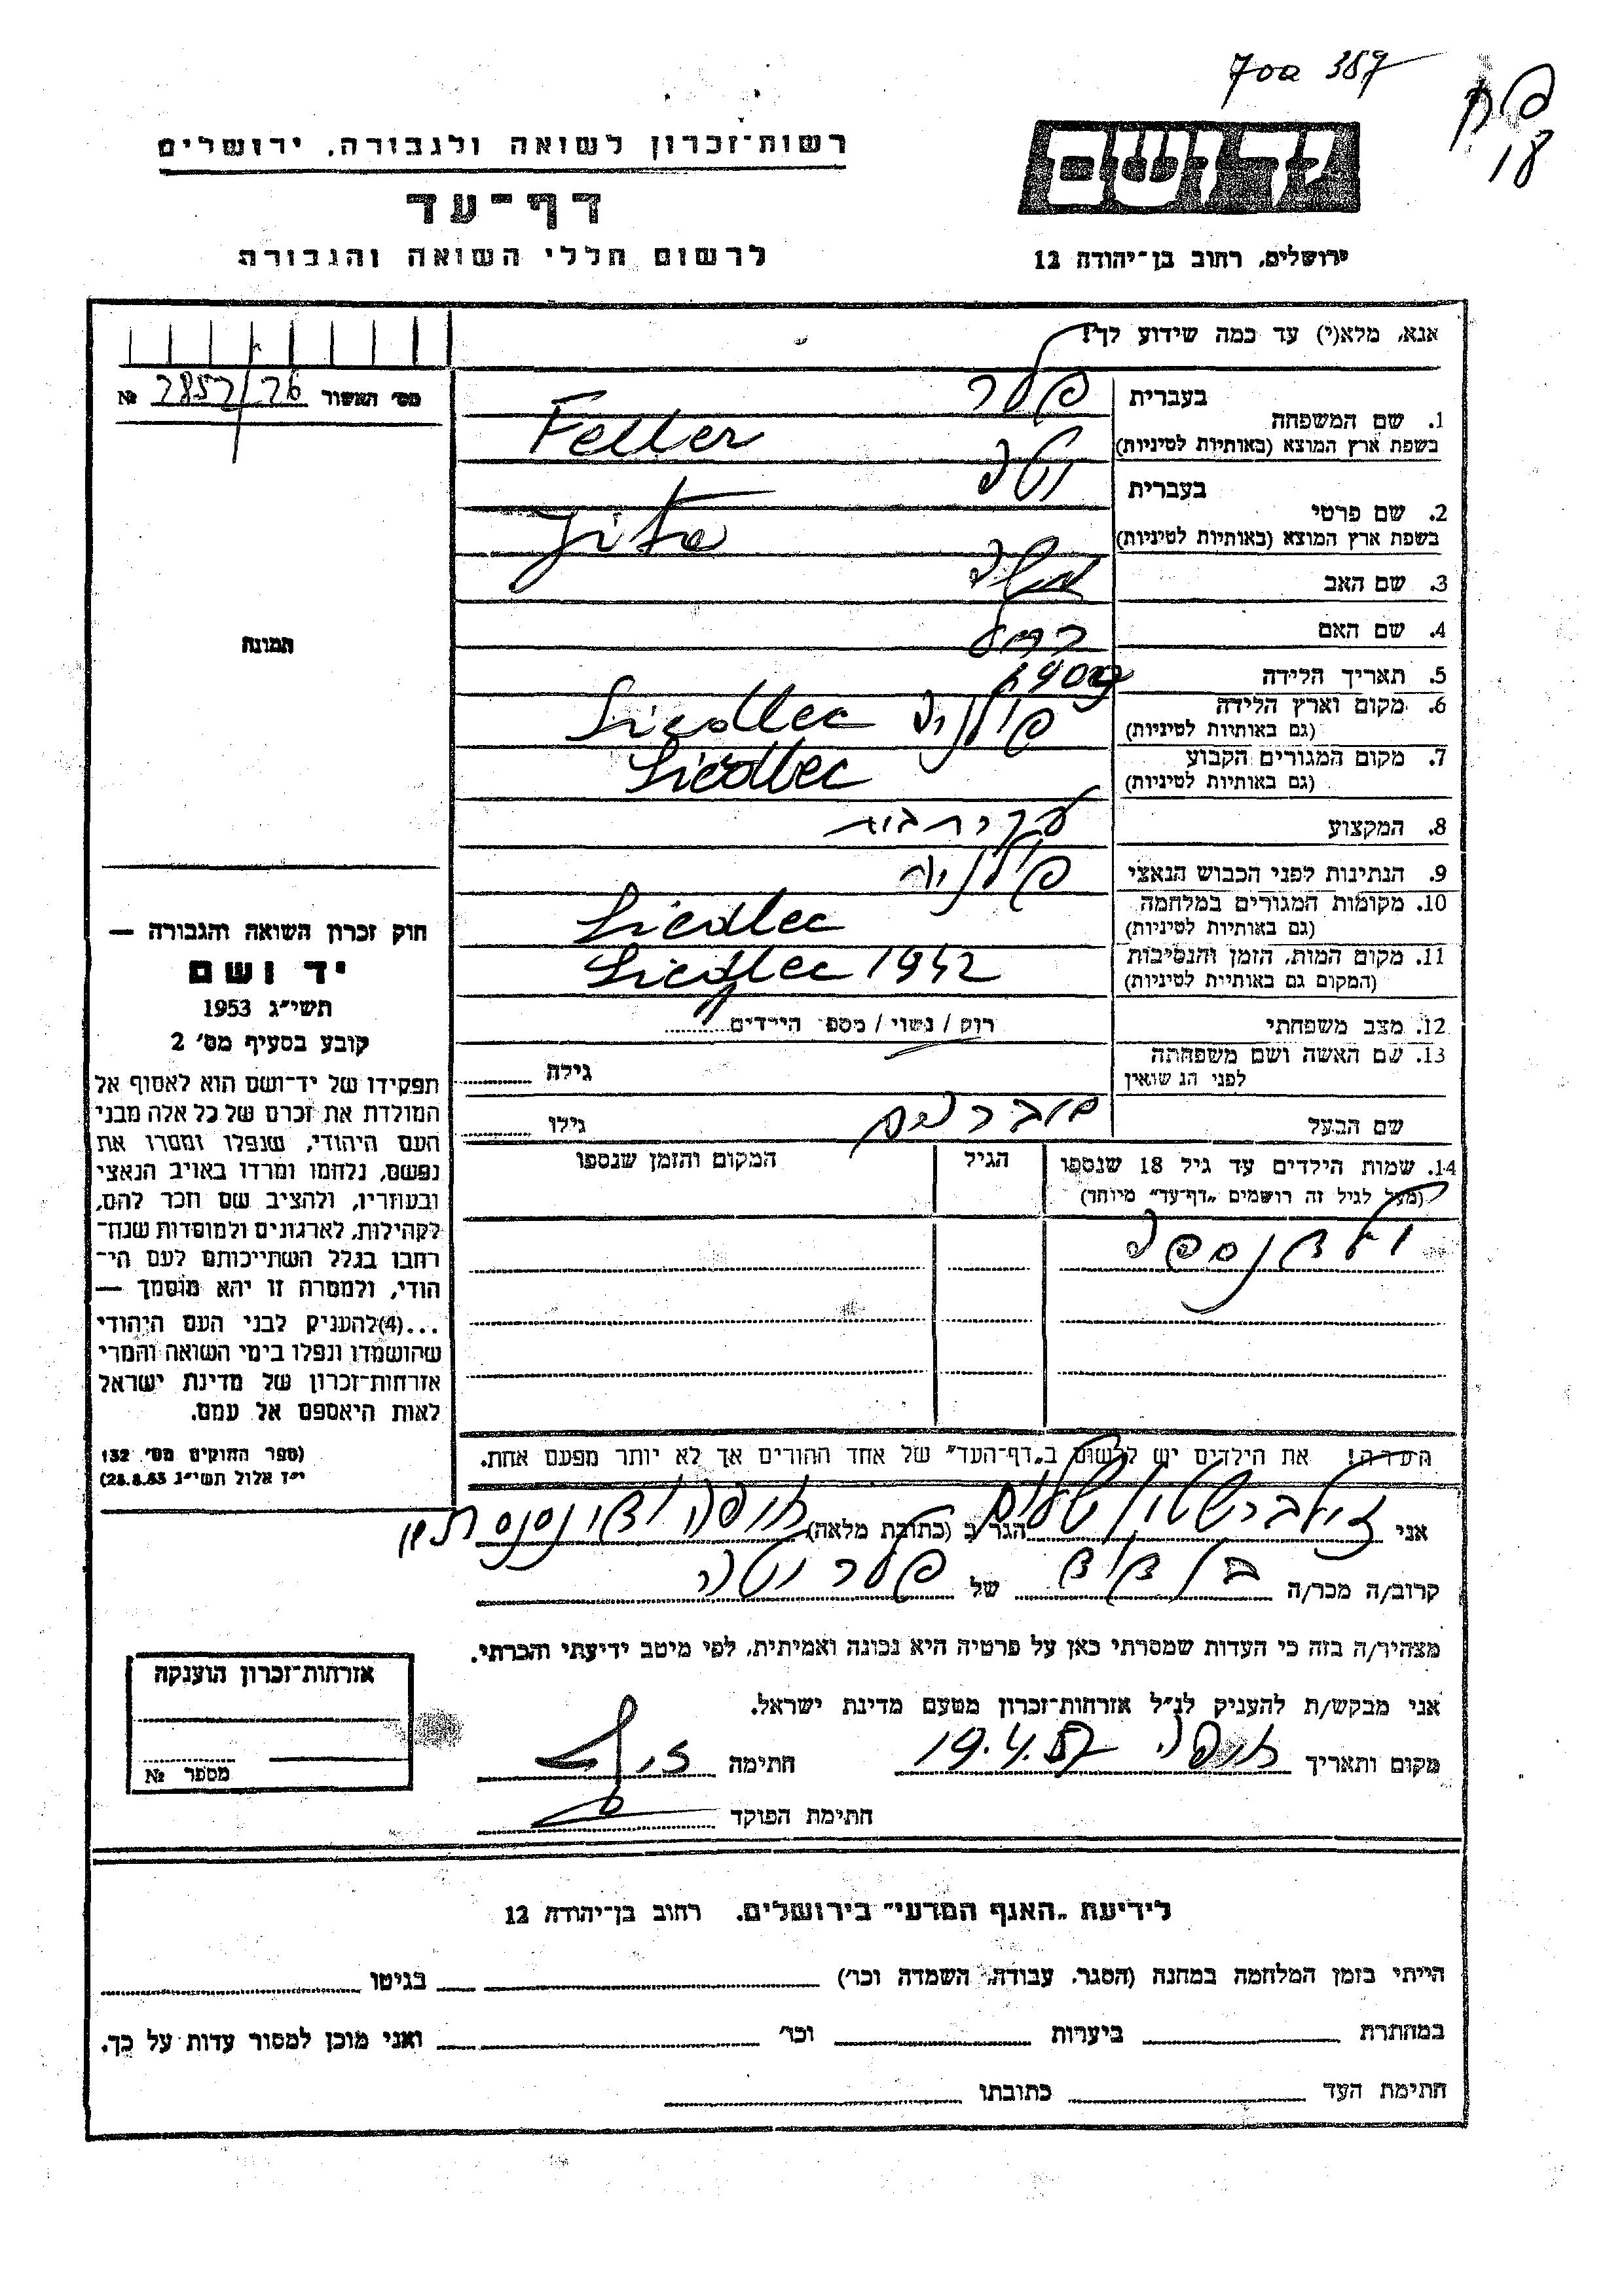 700 387
פח
18
יד ושם
רשות-זכרון לשואה ולגבורה, ירושלים
דף-עד
לרשום חללי השואה והגבורה
ירושלים, רחוב בן-יהודה 12
אנא, מלא(י) עד כמה שידוע לך!
מס׳ האשור 2852/26 №
1. שם המשפחה
בעברית פלר
בשפת ארץ המוצא (באותיות לטיניות) Feller
2. שם פרטי
בעברית יטה
בשפת ארץ המוצא (באותיות לטיניות) Jita
3. שם האב
4. שם האם רחל
5. תאריך הלידה
6. מקום וארץ הלידה
(גם באותיות לטיניות) פולניה Siedlec
7. מקום המגורים הקבוע
(גם באותיות לטיניות) Siedlec
8. המקצוע עקירת בית
9. הנתינות לפני הכבוש הנאצי פולנית
10. מקומות המגורים במלחמה
(גם באותיות לטיניות) Siedlec
11. מקום המות, הזמן והנסיבות
(המקום גם באותיות לטיניות) Siedlec 1942
12. מצב משפחתי רווק / נשוי / מספר הילדים
13. שם האשה ושם משפחתה
לפני הנשואין גילה
שם הבעל גילו
14. שמות הילדים עד גיל 18 שנספו
(מעל לגיל זה רושמים „דף-עד״ מיוחד)
הגיל
המקום והזמן שנספו
הערה! את הילדים יש לרשום ב„דף-העד״ של אחד ההורים אך לא יותר מפעם אחת.
תמונה
חוק זכרון השואה והגבורה —
יד ושם
תשי״ג 1953
קובע בסעיף מס׳ 2
תפקידו של יד-ושם הוא לאסוף אל
המולדת את זכרם של כל אלה מבני
העם היהודי, שנפלו ומסרו את
נפשם, נלחמו ומרדו באויב הנאצי
ובעוזריו, ולהציב שם וזכר להם,
לקהילות, לארגונים ולמוסדות שנח-
רבו בגלל השתייכותם לעם הי-
הודי, ולמטרה זו יהא מוסמך —
...(4) להעניק לבני העם היהודי
שהושמדו ונפלו בימי השואה והמרי
אזרחות-זכרון של מדינת ישראל
לאות היאספם אל עמם.
(ספר החוקים מס׳ 132
י״ז אלול תשי״ג 28.8.53)
אני זילברשטין שלום הגר ב (כתובת מלאה) חיפה
קרוב/ה מכר/ה בן דוד של פלר יטה
מצהיר/ה בזה כי העדות שמסרתי כאן על פרטיה היא נכונה ואמיתית, לפי מיטב ידיעתי והכרתי.
אני מבקש/ת להעניק לנ״ל אזרחות-זכרון מטעם מדינת ישראל.
מקום ותאריך חיפה 19.4.57 חתימה
חתימת הפוקד
אזרחות-זכרון הוענקה
מספר №
לידיעת „האגף המדעי״ בירושלים, רחוב בן-יהודה 12
הייתי בזמן המלחמה במחנה (הסגר, עבודה, השמדה וכו׳) בגיטו
במחתרת ביערות וכו׳ ואני מוכן למסור עדות על כך.
חתימת העד כתובתו